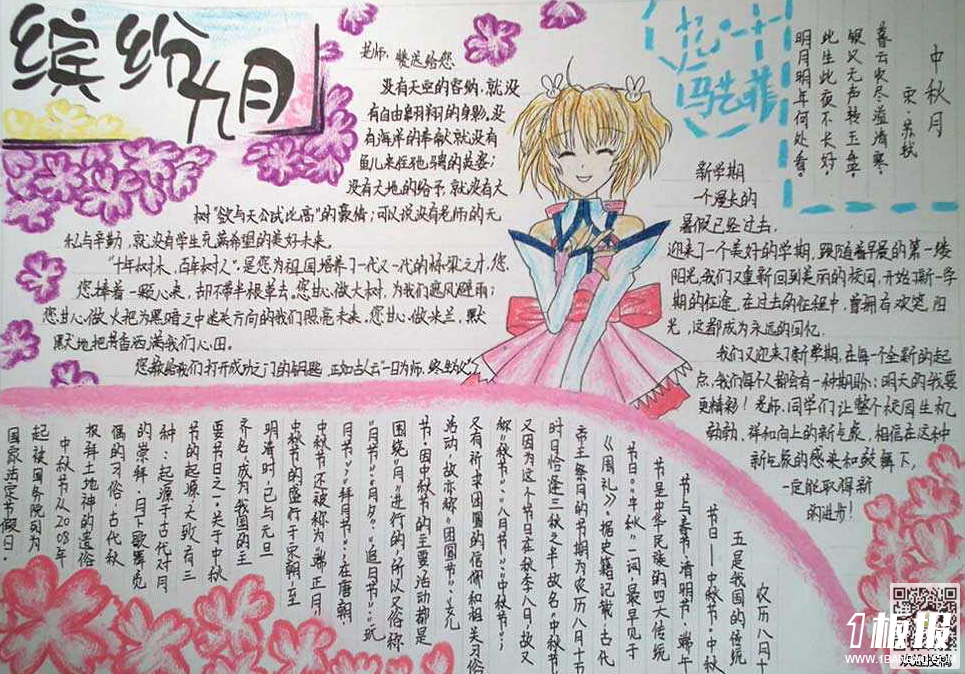 缤纷九月
老师,赞送给您
没有天空的容纳,就没
有自由翱翔的身影,没
有海洋的奉献就没有
鱼儿来往驰骋的英姿;
没有大地的给予,就没有大
树“欲与天公试比高”的豪情;可以说没有老师的无
私与辛勤,就没有学生充满希望的美好未来。
“十年树木,百年树人”,是您为祖国培养了一代又一代的栋梁之才,您,
您捧着一颗心来,却不带半根草去。您甘心做大树,为我们遮风避雨;
您甘心做火把为黑暗之中迷失方向的我们照亮未来,您甘心做米兰,默
默大地把芳香洒满我们心田。
您教给我们打开成功之门的钥匙,正如古人云“一日为师,终身为父”
马艺菲
中秋月
宋·苏轼
暮云收尽溢清寒,
银汉无声转玉盘,
此生此夜不长好,
明月明年何处看。
新学期
一个漫长的
暑假已经过去,
迎来了一个美好的学期,跟随着早晨的第一缕
阳光,我们又重新回到美丽的校园,开始了新一学
期的征途,在过去的征程中,曾拥有欢笑,阳
光,这都成为永远的回忆,
我们又迎来了新学期,在每个全新的起
点,我们每个人都会有一种期盼:明天的我要
更精彩!老师、同学们让整个校园生机
勃勃,祥和向上的新气象,相信在这种
新气象的感染和鼓舞下,
一定能取得新
的进步!
农历八月十
五是我国的传统
节日——中秋节。中秋
节与春节、清明节、端午
节是中华民族的四大传统
节日。“中秋”一词,最早见于
《周礼》。据史籍记载,古代
帝王祭月的节期为农历八月十五
时日恰逢三秋之半,故名“中秋节”;
又因为这个节日在秋季、八月,故又
称“秋节”、“八月节”、“中秋节”;
又有祈求团圆的信仰和相关习俗
活动,故亦称“团圆节”、
节。因中秋节的主要活动都是
围绕“月”进行的,所以又俗称
“月节”、“月夕”、“追月节”、“玩
月节”、“拜月节”;在唐朝,
中秋节还被称为“端正月”
中秋节的盛行于宋朝,至
明清时,已与元旦
齐名,成为我国的主
要节日之一。关于中秋
节的起源,大致有三
种:起源于古代对月
的崇拜、月下歌舞觅
偶的习俗,古代秋
报拜土地神的遗俗
中秋节从2008年
起被国务院列为
国家法定节假日。
1板报
WWW.1BANBAO.COM
欢迎投稿